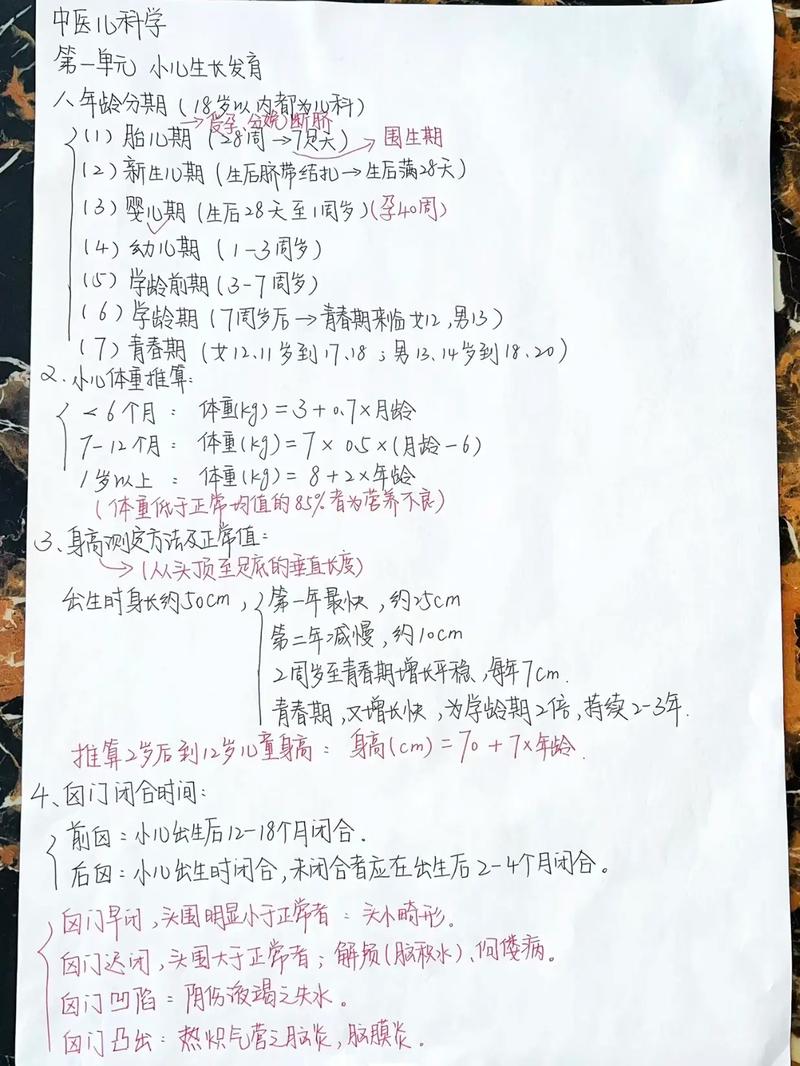 中医儿科学
第一单元 小儿生长发育
1、年龄分期（18岁以内都为儿科）
→受孕、分娩、断脐
（1）胎儿期（28周→7足天）→围生期
（2）新生儿期（生后脐带结扎→生后满28天）
（3）婴儿期（生后28天至1周岁）(孕40周)
（4）幼儿期（1-3周岁）
（5）学龄前期（3-7周岁）
（6）学龄期（7周岁后→青春期来临女12,男13）
（7）青春期（女12.11岁到17.18；男13.14岁到18.20）
2、小儿体重推算：
<6个月：体重(kg)=3+0.7×月龄
7-12个月：体重(kg)=7×0.5×(月龄-6)
1岁以上：体重(kg)=8+2×年龄
（体重低于正常均值的85%者为营养不良）
3、身高测定方法及正常值：
→（从头顶至足底的垂直长度）
出生时身长约50cm，第一年最快，约25cm
第二年减慢，约10cm
2周岁至青春期增长平稳，每年7cm.
青春期，又增长快，为学龄期2倍，持续2-3年.
推算2岁后到12岁儿童身高：身高(cm)=70+7×年龄.
4、囟门闭合时间：
前囟：小儿出生后12-18个月闭合.
后囟：小儿出生时闭合，未闭合者应在出生后2-4个月闭合。
囟门早闭，头围明显小于正常者：头小畸形。
囟门迟闭，头围大于正常者；解颅(脑积水)、佝偻病。
囟门凹陷：阴伤液竭之失水。
囟门凸出：热炽气营之脑炎，脑膜炎。